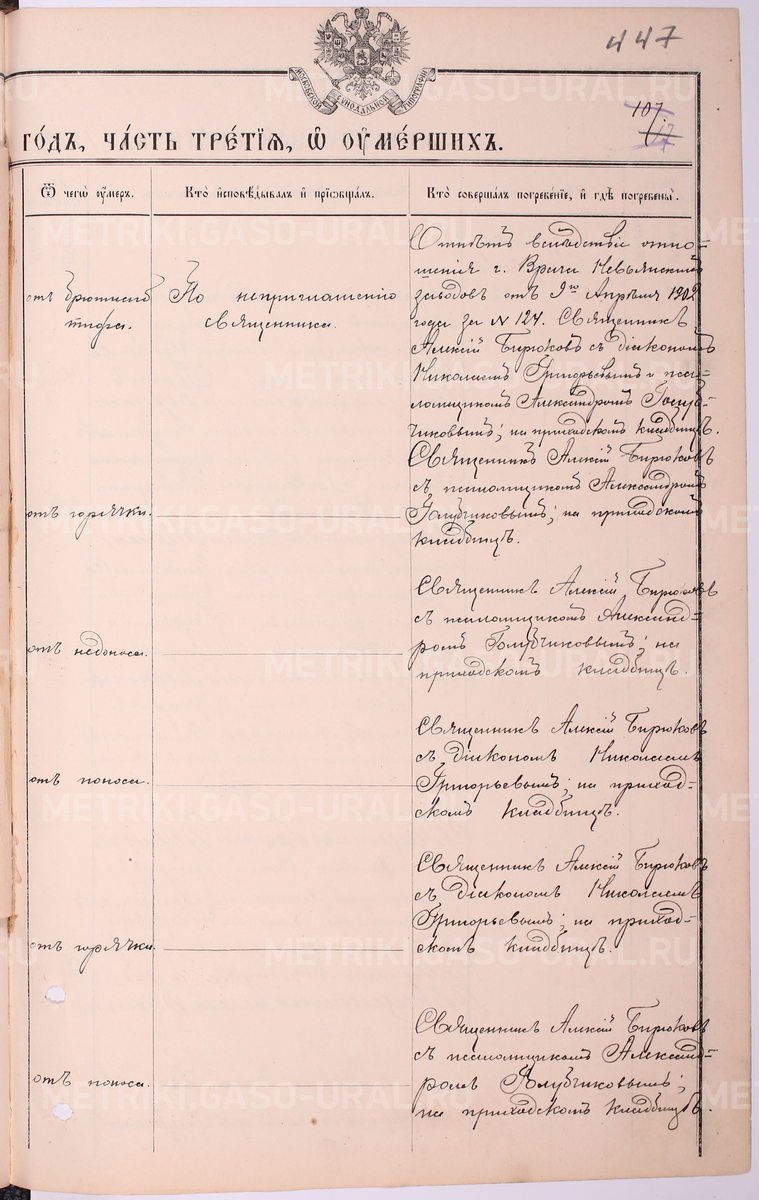 447
МОСКОВСКОЙ СѴНОДАЛЬНОЙ ТИПОГРАФІИ
107.
ГО́ДЪ, ЧА́СТЬ ТРЕ́ТЇѦ, Ѡ҆ ОУ҆МЕ́РШИХЪ.
Ѿ чегѡ̀ оу҆́меръ.
Кто̀ и҆сповѣ́дывалъ и҆ прїѡбща́лъ.
Кто̀ соверша́лъ погребе́нїе, и҆ гдѣ̀ погребены̀.
отъ брюшного
тифа.
По неприглашенію
священника.
Отпѣтъ вслѣдствіе отно-
шенія г. Врача Невьянскихъ
заводовъ отъ 9го Апрѣля 1902
года за № 124. Священникъ
Алексій Бирюковъ съ діакономъ
Николаемъ Григорьевымъ и пса-
ломщикомъ Александромъ Голуб-
чиковымъ; на приходскомъ кладбищѣ.
отъ горячки.
Священникъ Алексій Бирюковъ
съ псаломщикомъ Александромъ
Голубчиковымъ; на приходскомъ
кладбищѣ.
отъ недоноса.
Священникъ Алексій Бирюковъ
съ псаломщикомъ Александ-
ромъ Голубчиковымъ; на
приходскомъ кладбищѣ.
отъ поноса.
Священникъ Алексій Бирюковъ
съ діакономъ Николаемъ
Григорьевымъ; на приход-
скомъ кладбищѣ.
отъ горячки.
Священникъ Алексій Бирюковъ
съ діакономъ Николаемъ
Григорьевымъ; на приход-
скомъ кладбищѣ.
отъ поноса.
Священникъ Алексій Бирюковъ
съ псаломщикомъ Александ-
ромъ Голубчиковымъ;
на приходскомъ кладбищѣ.
METRIKI.GASO-URAL.RU